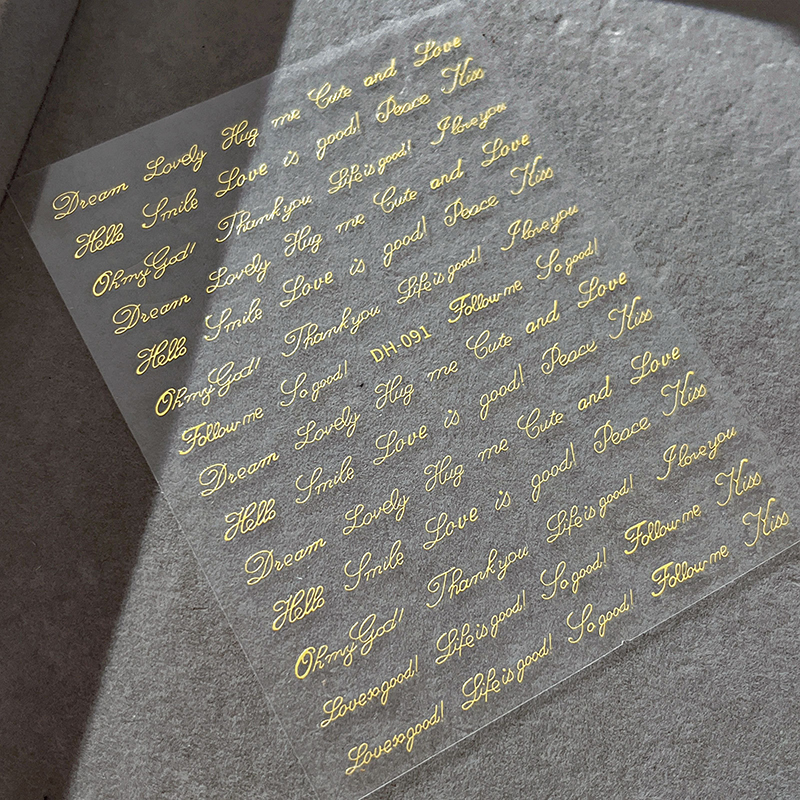 Dream Lovely Hug me Cute and Love
Hello Smile Love is good! Peace Kiss
Oh my God! Thank you Life is good! I love you
Dream Lovely Hug me Cute and Love
Hello Smile Love is good! Peace Kiss
Oh my God! Thank you Life is good! I love you
Follow me So good! DH-091 Follow me So good!
Dream Lovely Hug me Cute and Love
Hello Smile Love is good! Peace Kiss
Dream Lovely Hug me Cute and Love
Hello Smile Love is good! Peace Kiss
Oh my God! Thank you Life is good! I love you
Love so good! Life is good! So good! Follow me Kiss
Love so good! Life is good! So good! Follow me Kiss